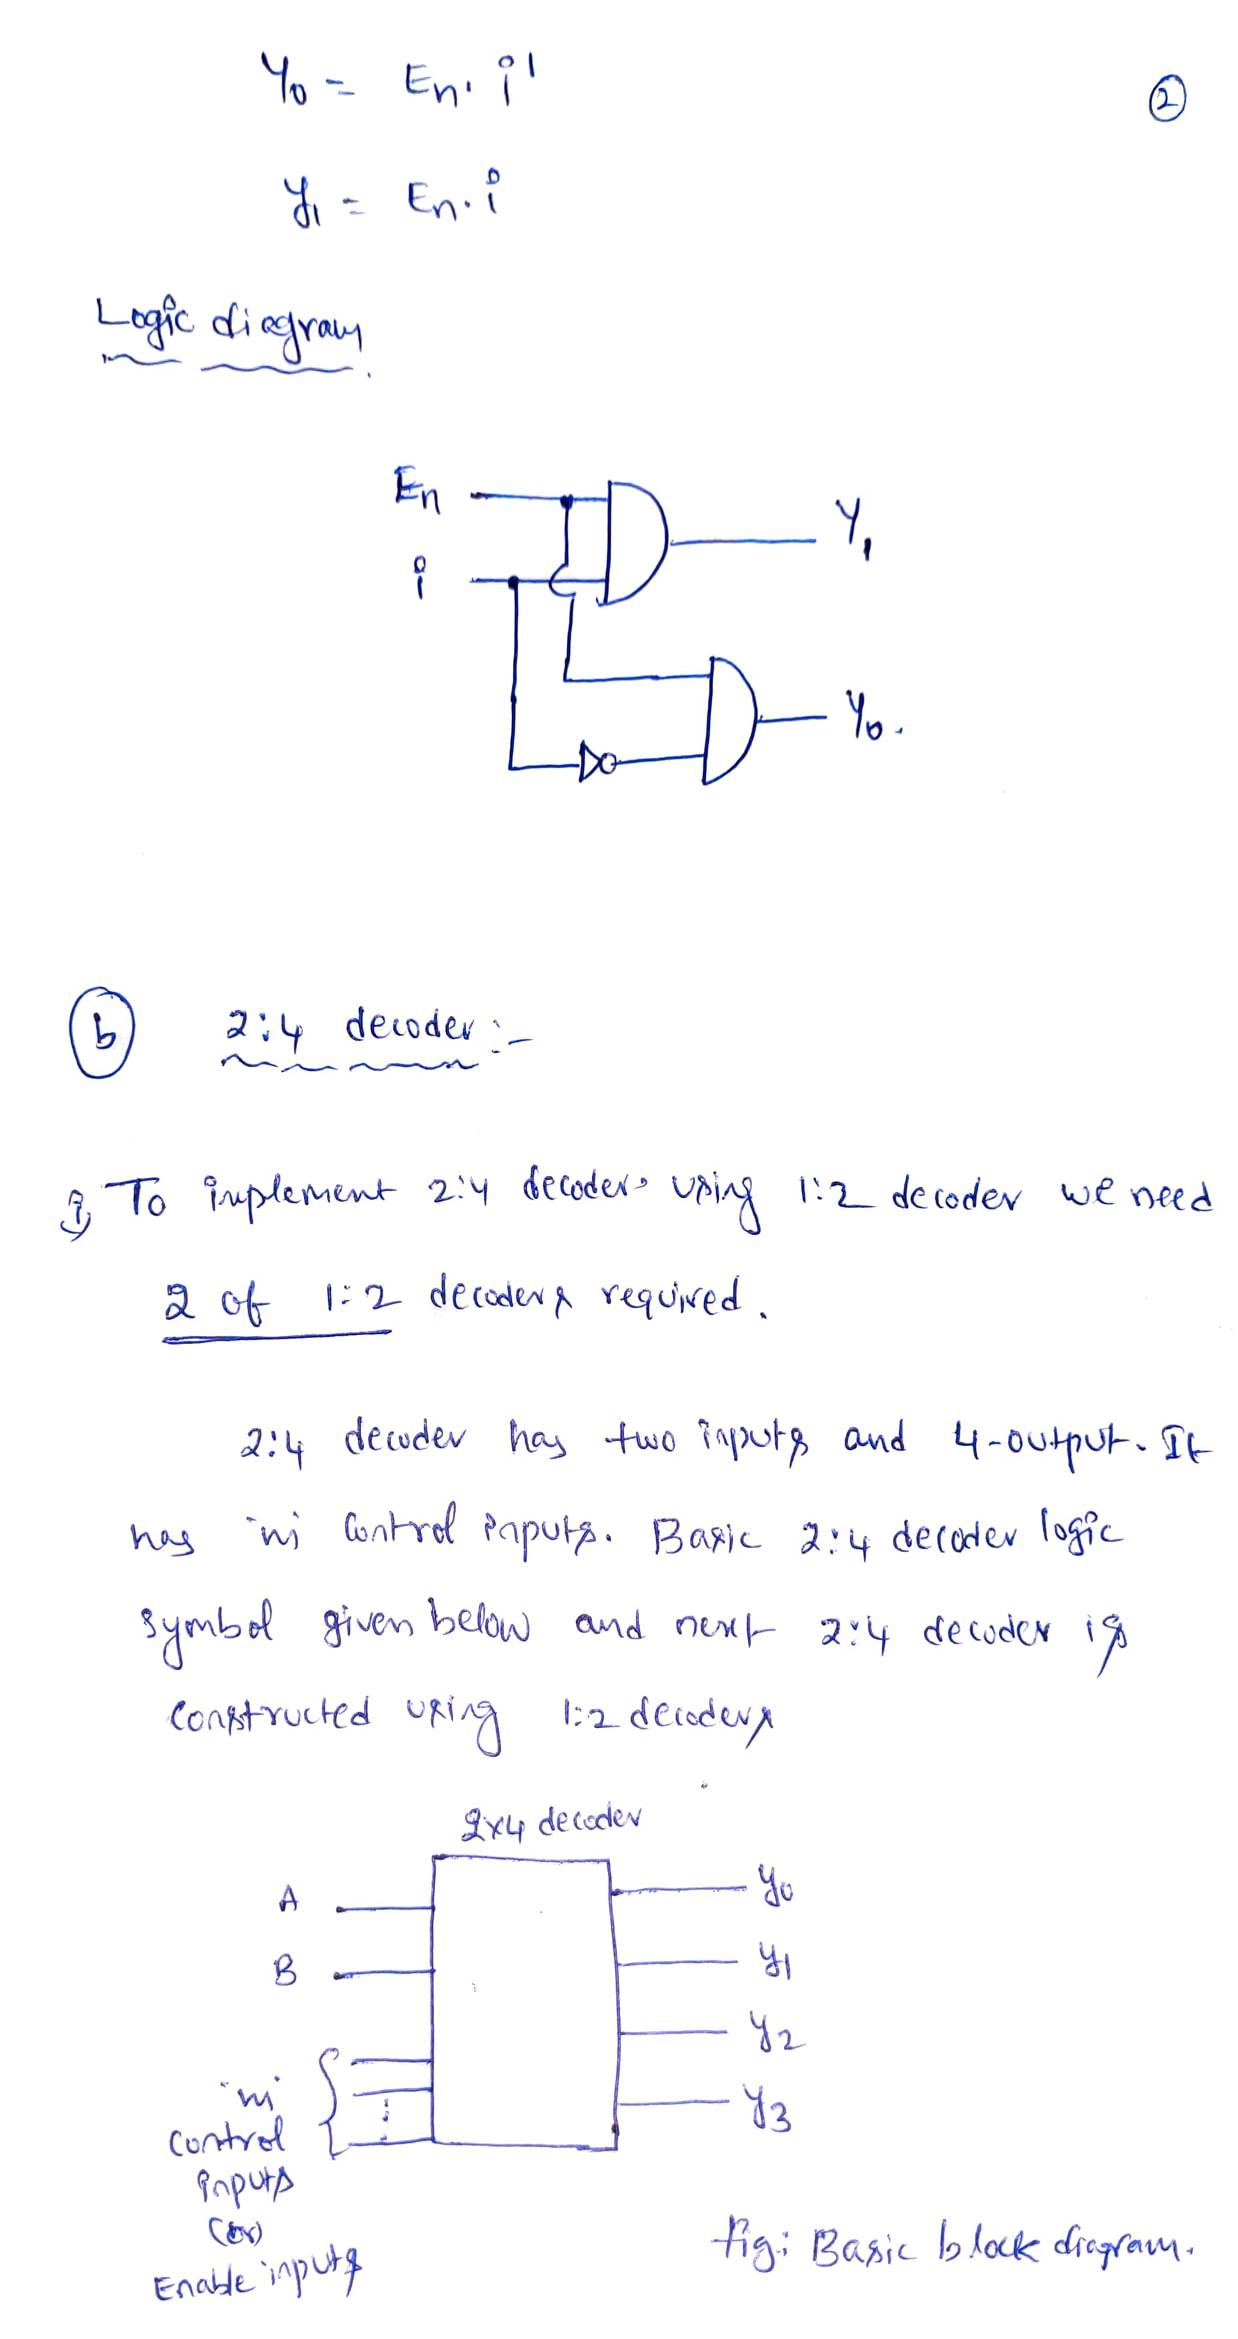 Y0 = En. i'
2
Y1 = En. i
Logic diagram.
En
Y1
i
Y0.
b 2:4 decoder :-
i) To implement 2:4 decoders using 1:2 decoder we need
2 of 1:2 decoders required.
2:4 decoder has two inputs and 4-output. It
has 'n' control inputs. Basic 2:4 decoder logic
symbol given below and next 2:4 decoder is
constructed using 1:2 decoders
2x4 decoder
A
Y0
B
Y1
Y2
'n'
Y3
control
inputs
(or)
Enable inputs
fig: Basic block diagram.